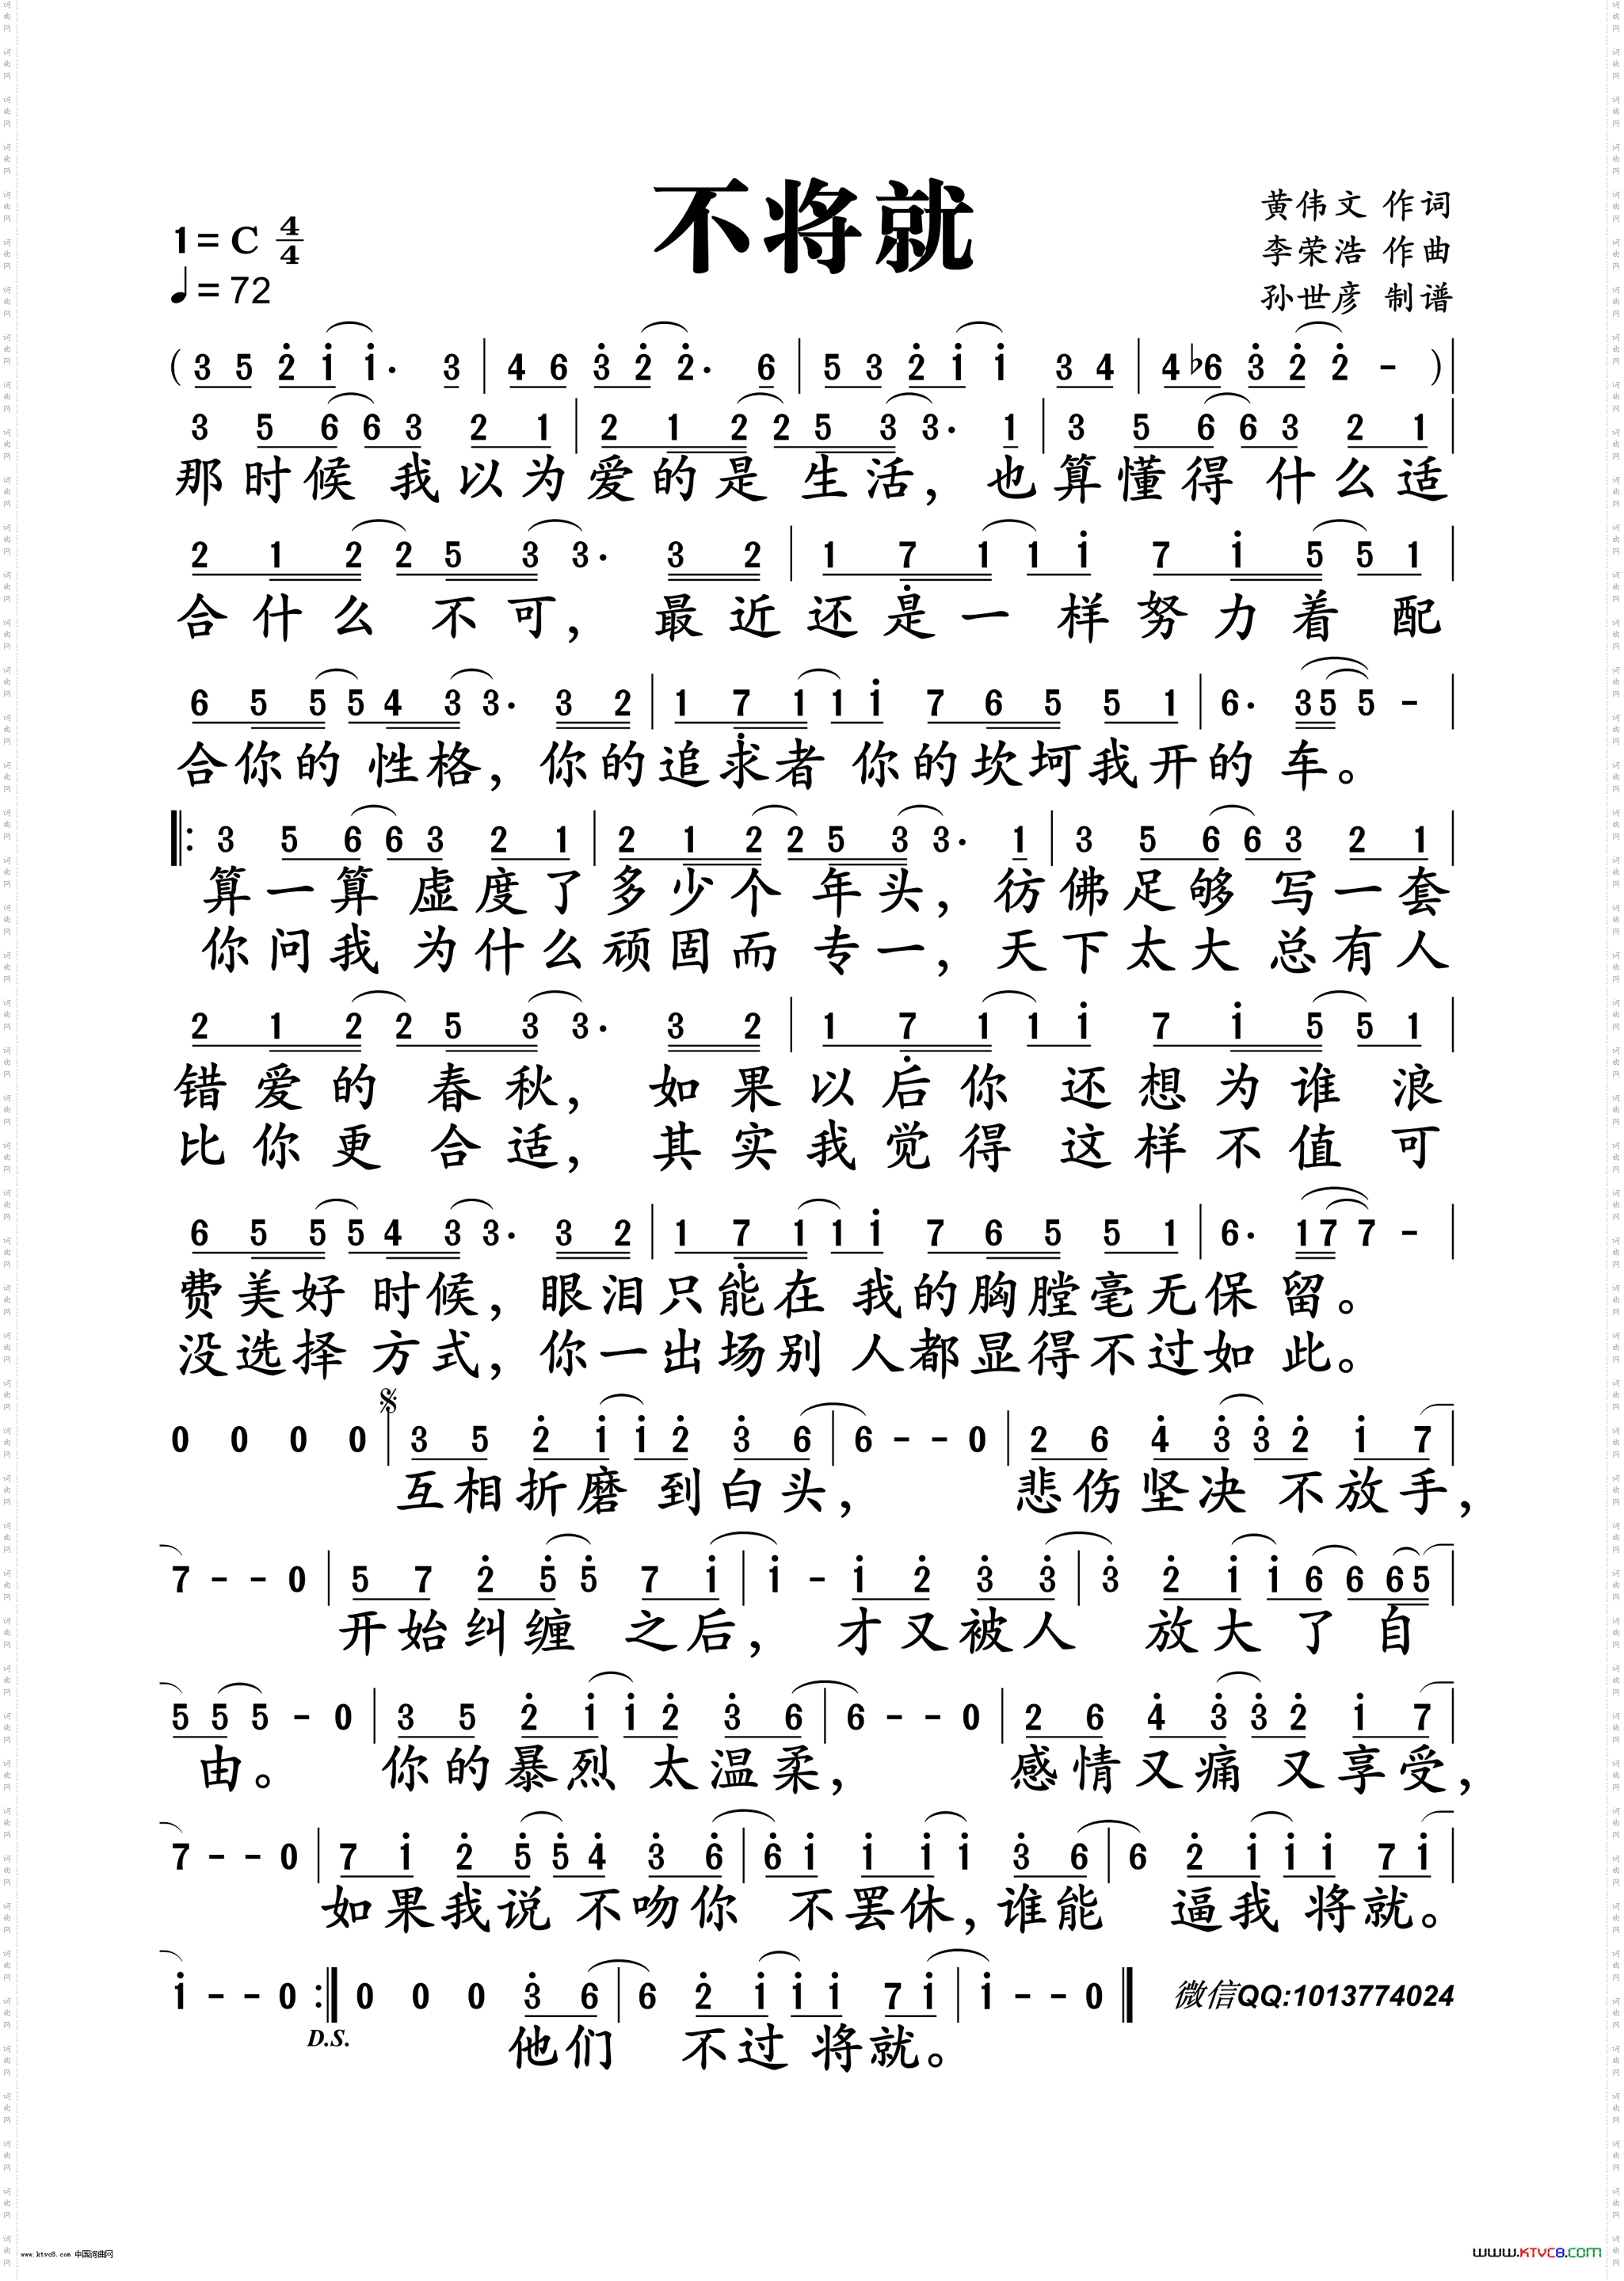 不将就
1=C 4/4
♩=72
黄伟文 作词
李荣浩 作曲
孙世彦 制谱
( 3 5 2̇ 1̇ 1̇· 3 | 4 6 3̇ 2̇ 2̇· 6 | 5 3 2̇ 1̇ 1̇ 3 4 | 4 ♭6 3̇ 2̇ 2̇ - ) |
3 5 6 6 3 2 1 | 2 1 2 2 5 3 3· 1 | 3 5 6 6 3 2 1 |
那时候 我以为爱的是 生活，也算懂得 什么适
2 1 2 2 5 3 3· 3 2 | 1 7̣ 1 1 1̇ 7 1̇ 5 5 1 |
合什么 不可， 最近还是一 样努力着 配
6 5 5 5 4 3 3· 3 2 | 1 7̣ 1 1 1̇ 7 6 5 5 1 | 6· 3 5 5 - |
合你的 性格，你的追求者 你的坎坷我开的 车。
‖: 3 5 6 6 3 2 1 | 2 1 2 2 5 3 3· 1 | 3 5 6 6 3 2 1 |
算一算 虚度了多少个 年头，彷佛足够 写一套
你问我 为什么顽固而 专一，天下太大 总有人
2 1 2 2 5 3 3· 3 2 | 1 7̣ 1 1 1̇ 7 1̇ 5 5 1 |
错爱的 春秋， 如果以后你 还想为谁 浪
比你更 合适， 其实我觉得 这样不值 可
6 5 5 5 4 3 3· 3 2 | 1 7̣ 1 1 1̇ 7 6 5 5 1 | 6· 1 7 7 - |
费美好 时候，眼泪只能在 我的胸膛毫无保 留。
没选择 方式，你一出场别 人都显得不过如 此。
0 0 0 0 | 𝄋 3 5 2̇ 1̇ 1̇ 2̇ 3̇ 6 | 6 - - 0 | 2 6 4̇ 3̇ 3̇ 2̇ 1̇ 7 |
互相折磨 到白头， 悲伤坚决 不放手，
7 - - 0 | 5 7 2̇ 5̇ 5̇ 7 1̇ | 1̇ - 1̇ 2̇ 3̇ 3̇ | 3̇ 2̇ 1̇ 1̇ 6 6 6 5 |
开始纠缠 之后， 才又被人 放大了自
5 5 5 - 0 | 3 5 2̇ 1̇ 1̇ 2̇ 3̇ 6 | 6 - - 0 | 2 6 4̇ 3̇ 3̇ 2̇ 1̇ 7 |
由。 你的暴烈 太温柔， 感情又痛 又享受，
7 - - 0 | 7 1̇ 2̇ 5̇ 5̇ 4̇ 3̇ 6̇ | 6̇ 1̇ 1̇ 1̇ 1̇ 3̇ 6 | 6 2̇ 1̇ 1̇ 1̇ 7 1̇ |
如果我说 不吻你 不罢休，谁能 逼我 将就。
1̇ - - 0 :‖ 0 0 0 3̇ 6 | 6 2̇ 1̇ 1̇ 1̇ 7 1̇ | 1̇ - - 0 ‖ 微信QQ:1013774024
D.S. 他们 不过 将就。
www.ktvc8.com 中国词曲网
www.KTVC8.com